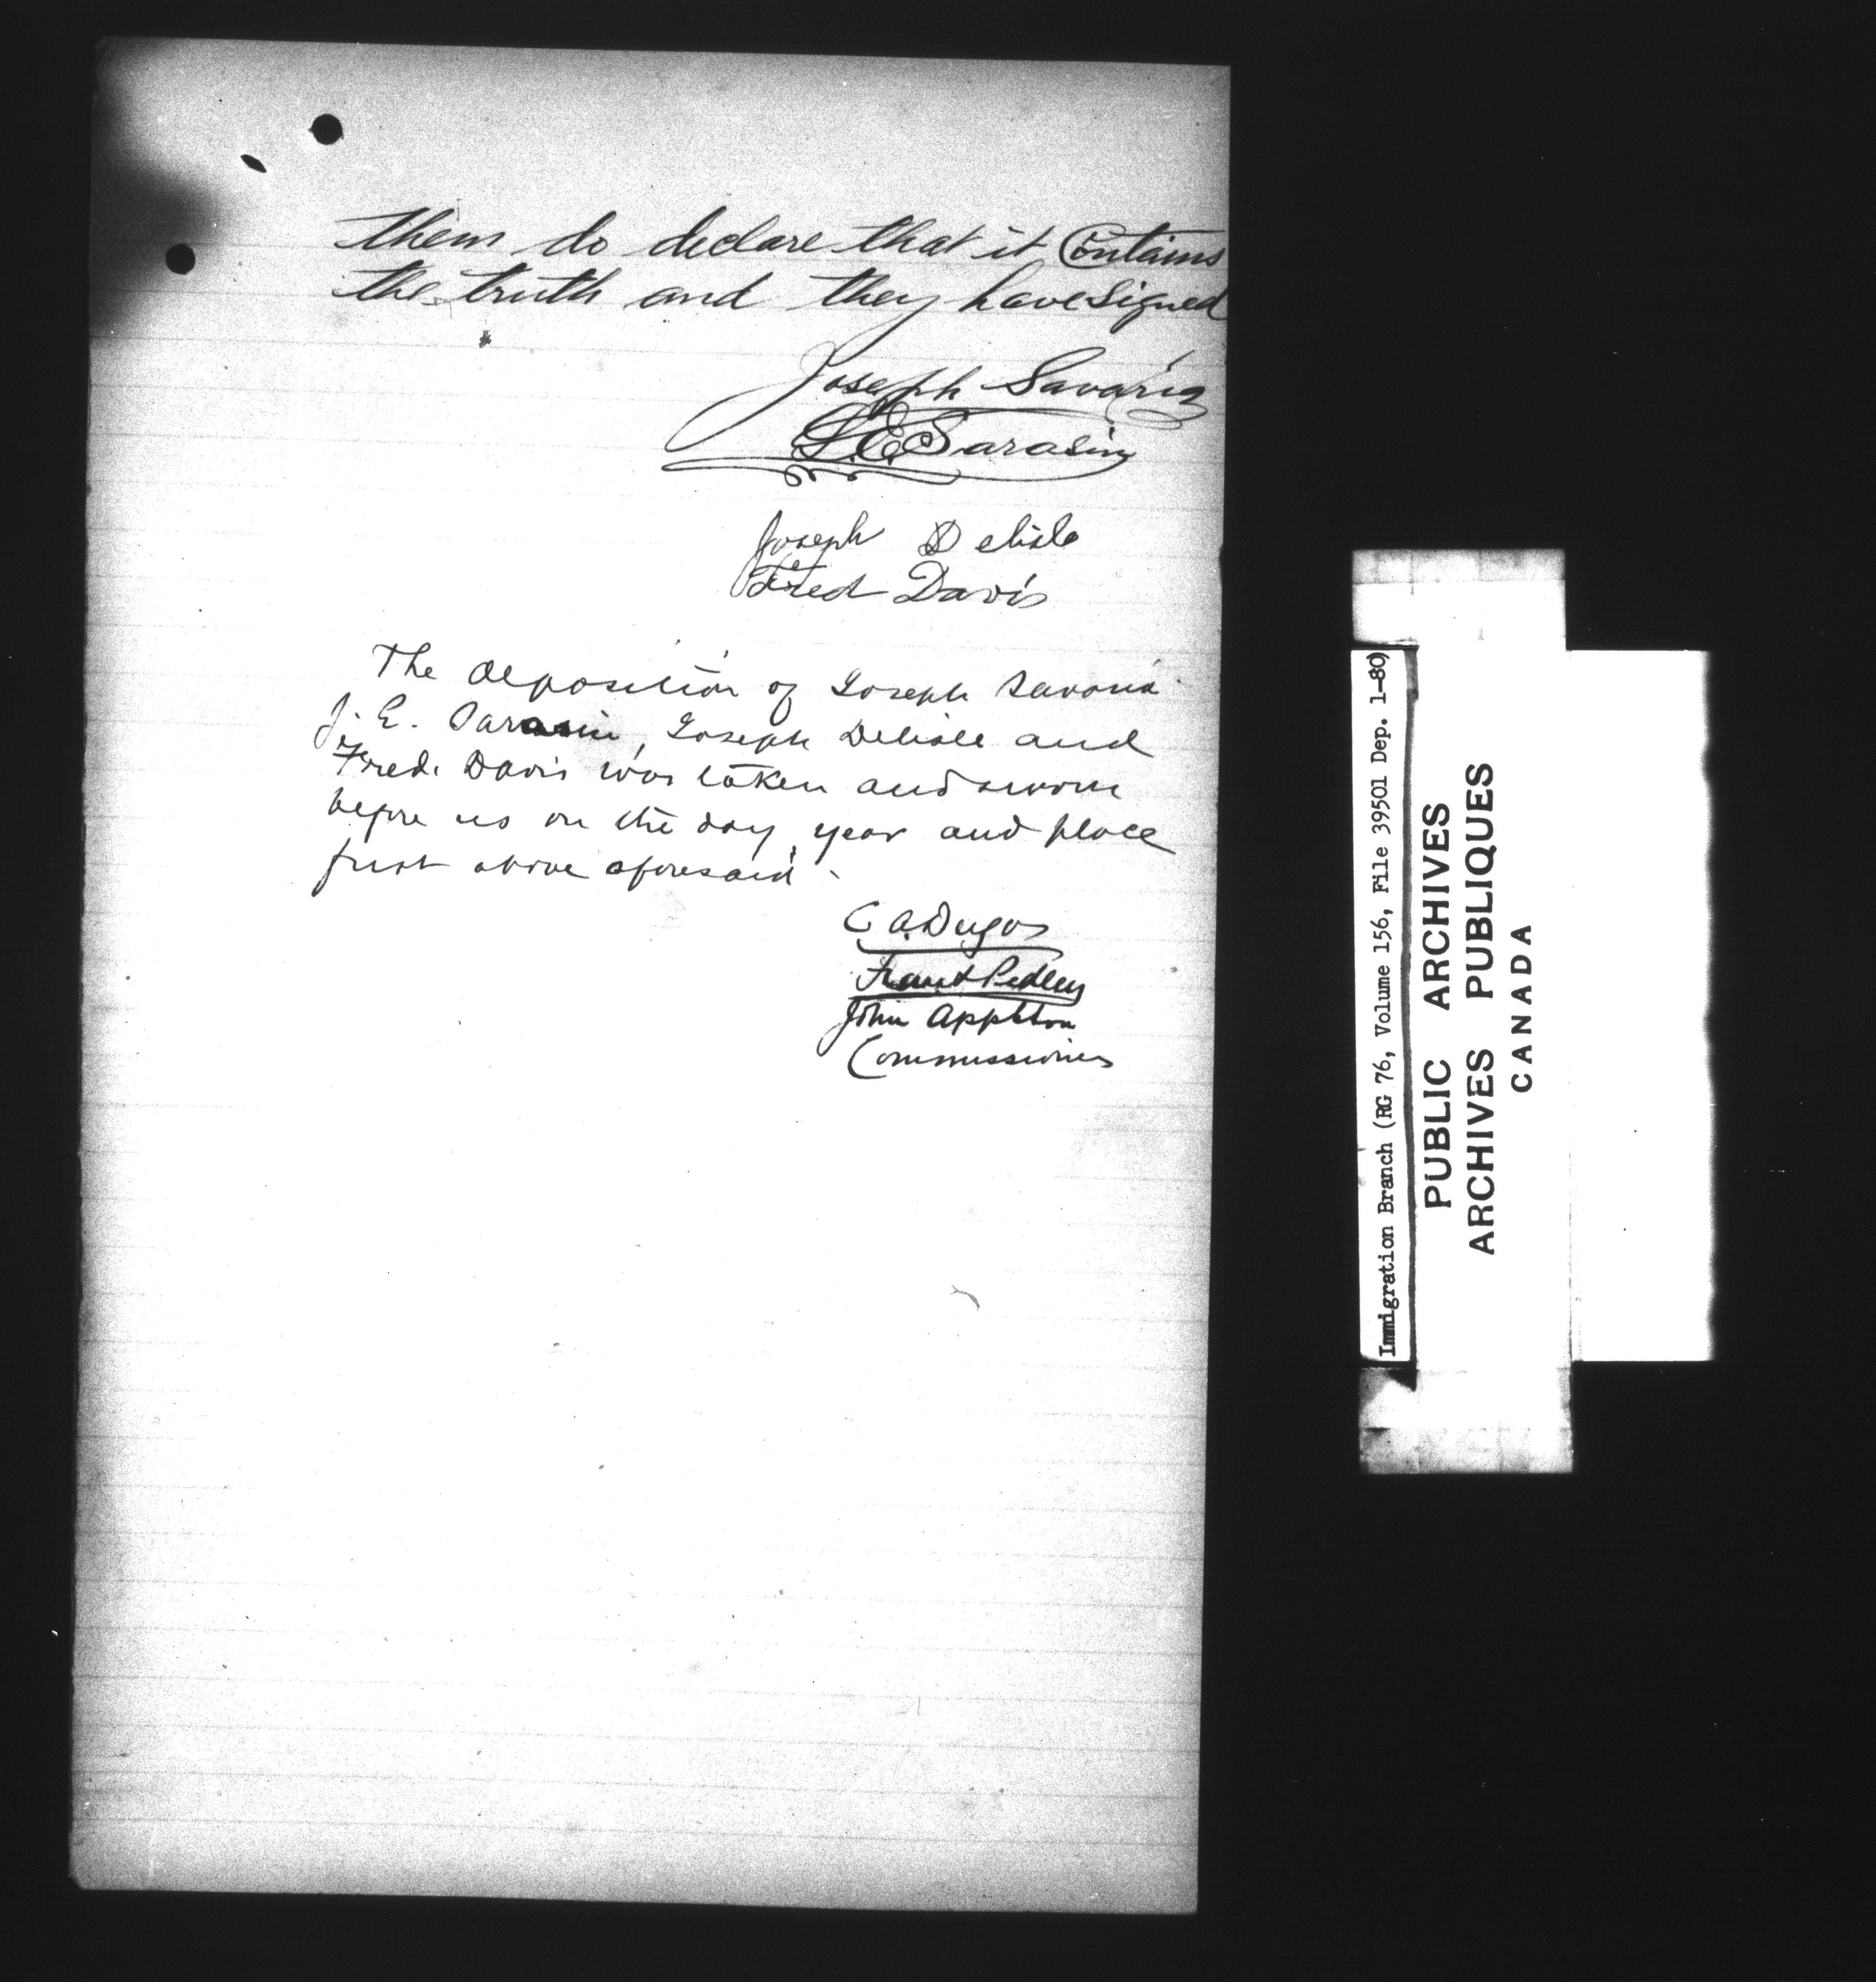 them do declare that it Contains
the truth and they have signed
Joseph Savaria
J. E. Sarasin
Joseph Delisle
Fred Davis
The deposition of Joseph Savaria
J. E. Sarasin, Joseph Delisle and
Fred. Davis was taken and sworn
before us on the day, year and place
first above aforesaid.
C A Dugas
Frank Pedley
John Appleton
Commissioners
Immigration Branch (RG 76, Volume 156, File 39501 Dep. 1-80)
PUBLIC ARCHIVES
ARCHIVES PUBLIQUES
CANADA